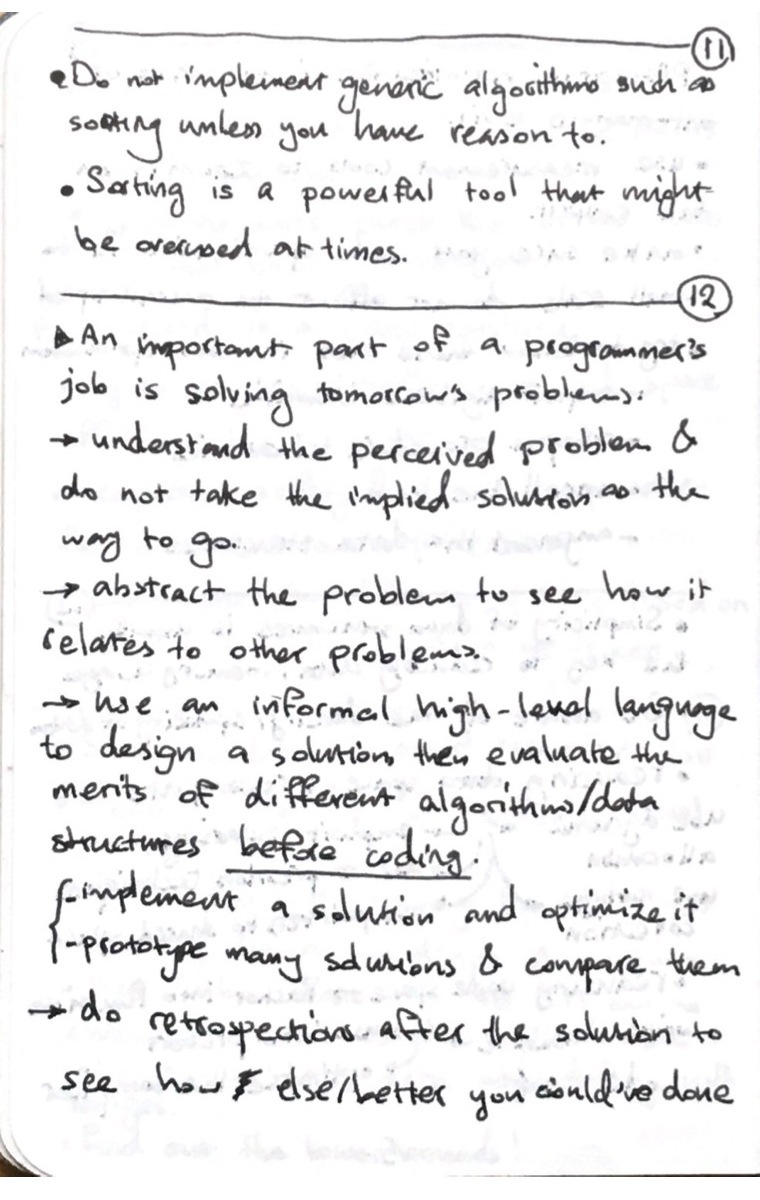 11
• Do not implement generic algorithms such as
sorting unless you have reason to.
• Sorting is a powerful tool that might
be overused at times.
12
▶ An important part of a programmer's
job is solving tomorrow's problems.
→ understand the perceived problem &
do not take the implied solution as the
way to go.
→ abstract the problem to see how it
relates to other problems.
→ use an informal high-level language
to design a solution, then evaluate the
merits of different algorithms/data
structures before coding.
-implement a solution and optimize it
-prototype many solutions & compare them
→ do retrospections after the solution to
see how else/better you could've done